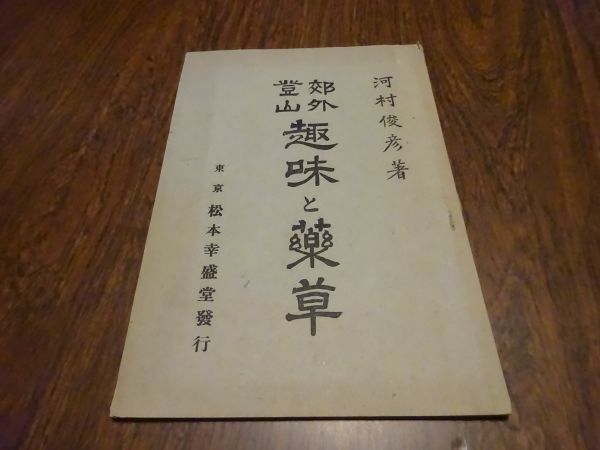 河村俊彦著
郊外
登山
趣味と藥草
東京 松本幸盛堂發行